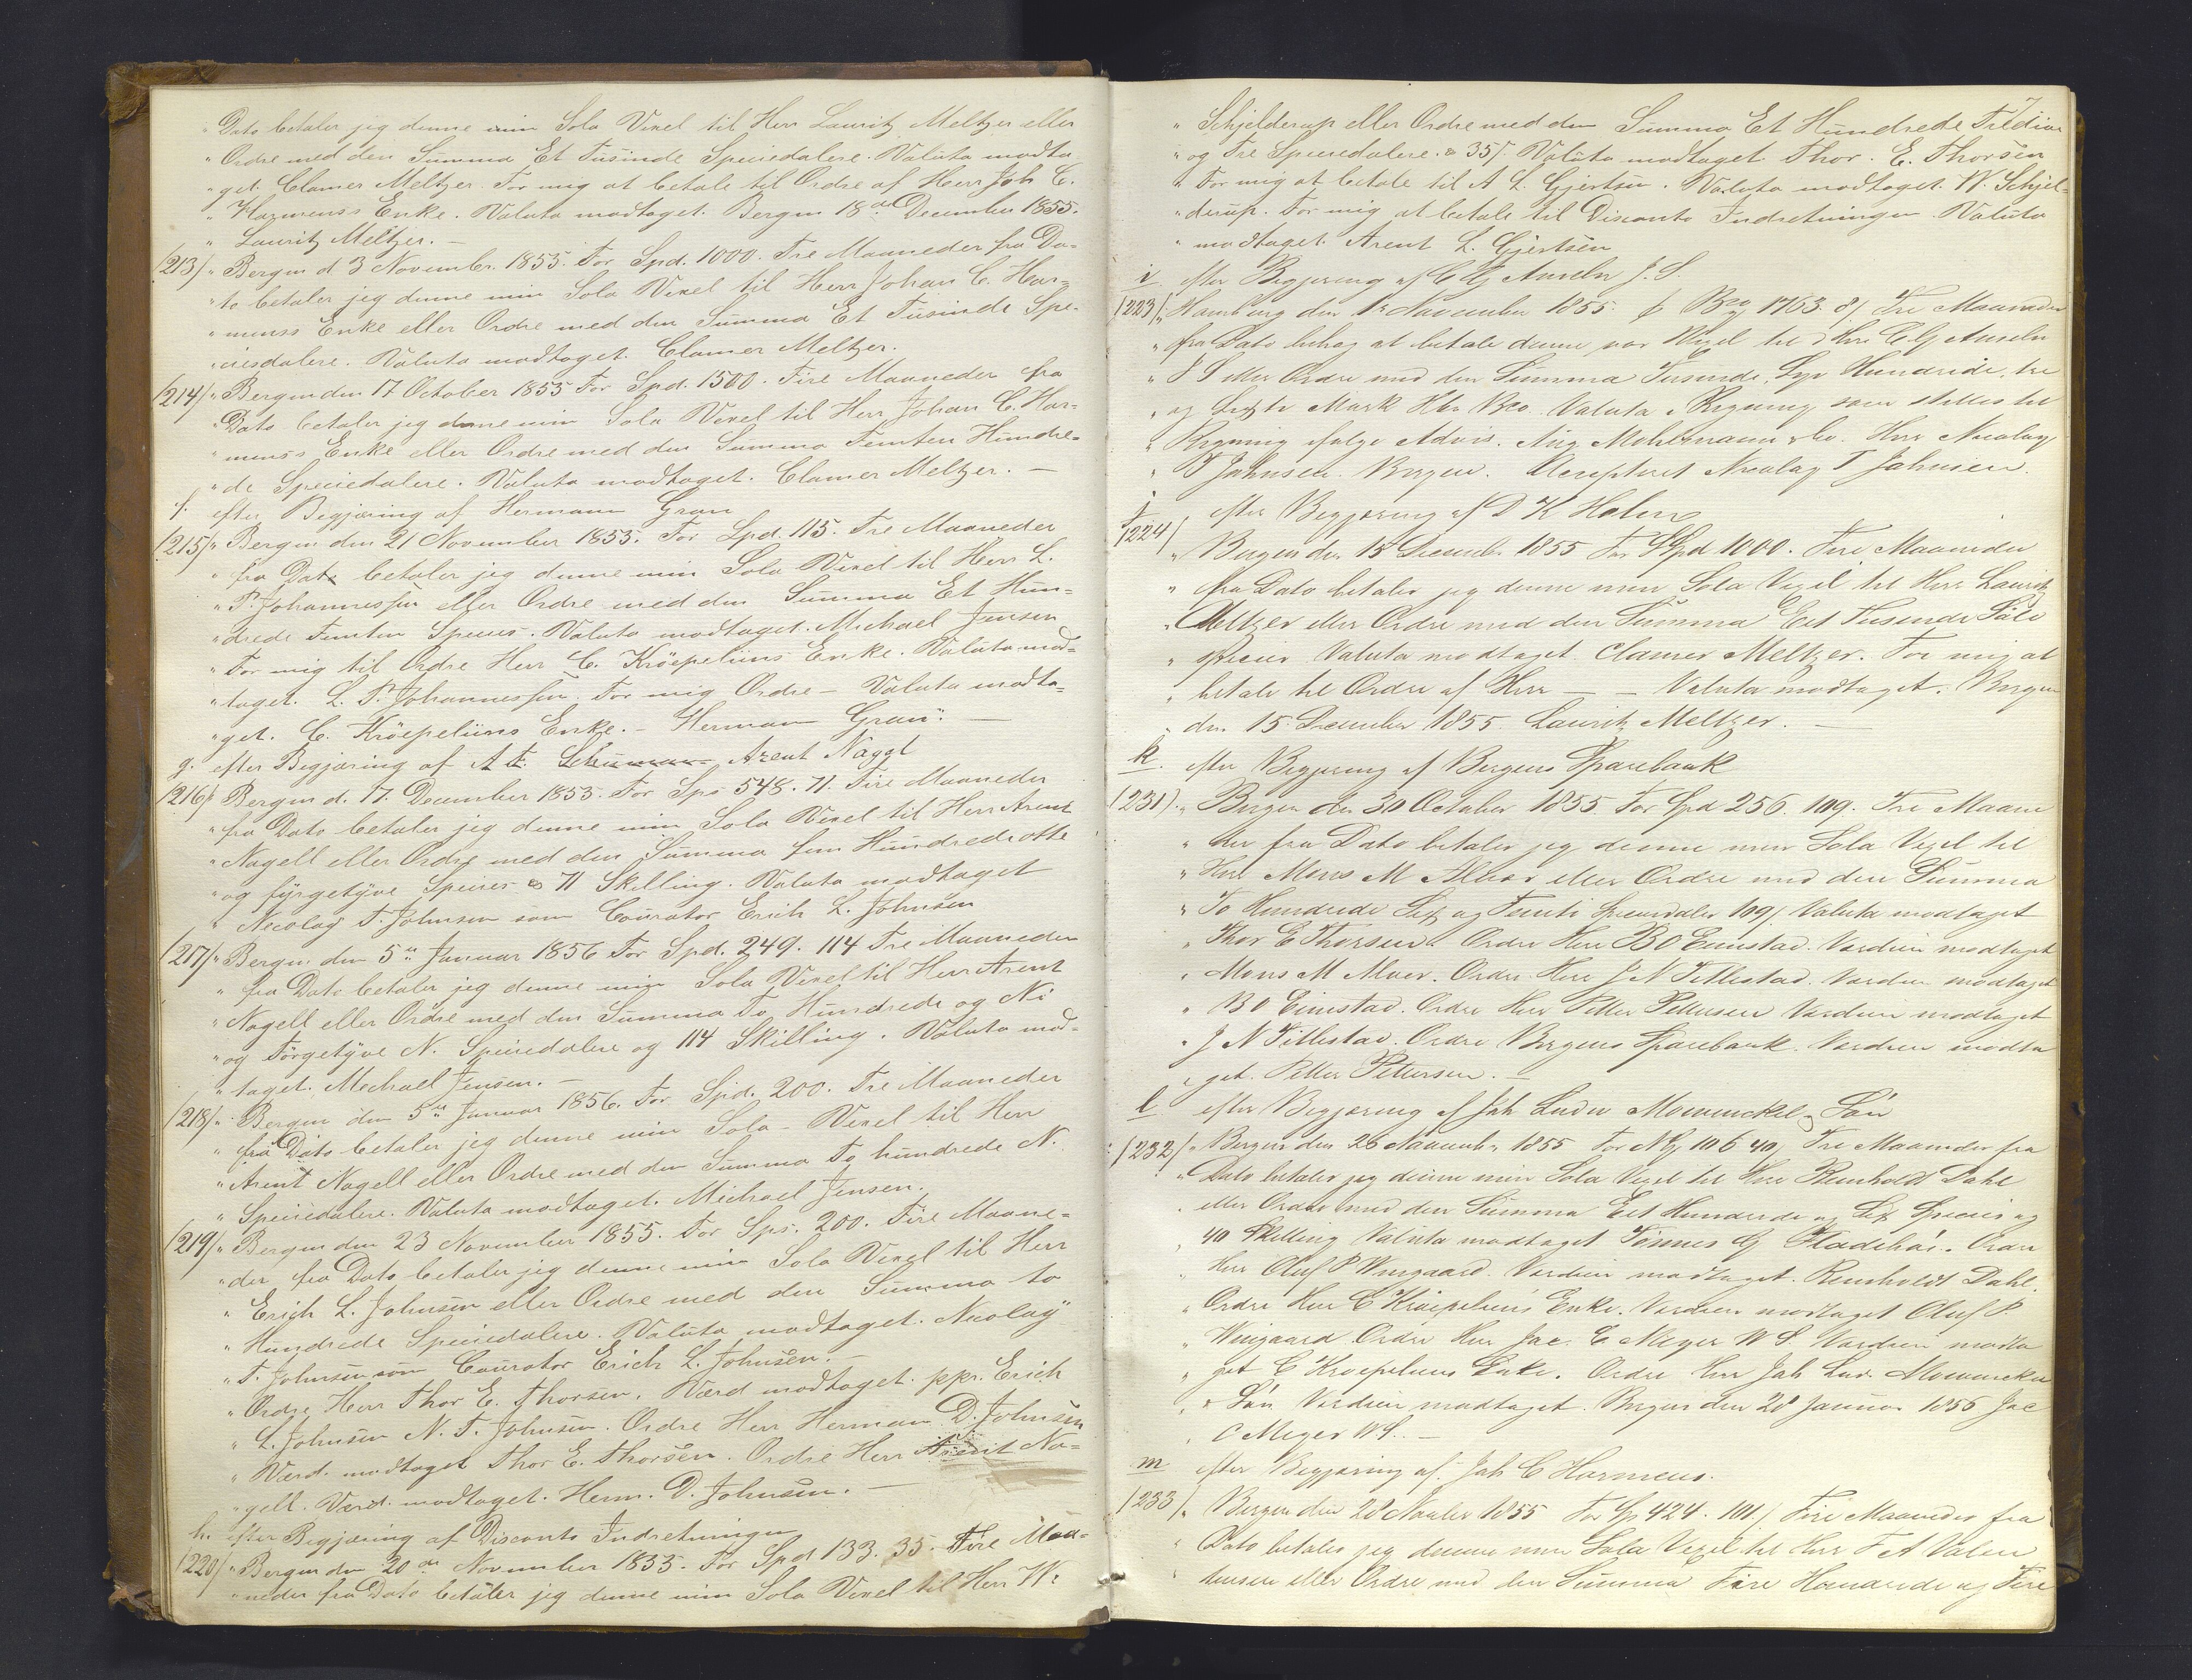 " Dato betaler jeg denne min Sola Vexel til Herr Lauritz Meltzer eller
" Ordre med den Summa Et Tusinde Speciedalere. Valuta modta
" get. Clamer Meltzer. For mig at betale til Ordre af Herr Joh C.
" Harmenss Enke. Valuta modtaget. Bergen 18de December 1855.
" Lauritz Meltzer. —
1213/ " Bergen d. 3 November 1855. For Spd. 1000. Tre Maaneder fra Da-
" to betaler jeg denne min Sola Vexel til Herr Johan C. Har-
" menss Enke eller Ordre med den Summa Et Tusinde Spe-
" ciesdalere. Valuta modtaget. Clamer Meltzer.
1214/ " Bergen den 17 October 1855 For Spd. 1500. Fire Maaneder fra
" Dato betaler jeg denne min Sola Vexel til Herr Johan C. Har-
" menss Enke eller Ordre med den Summa Femten Hundre-
" de Speciedalere. Valuta modtaget. Clamer Meltzer. —
f. efter Begjæring af Hermann Gran
1215/ " Bergen den 21 November 1855. For Spd. 115. Tre Maaneder
" fra Dato betaler jeg denne min Sola Vexel til Herr L.
" P. Johannessen eller Ordre med den Summa Et Hun-
" drede Femten Species. Valuta modtaget. Michael Jensen
" For mig til Ordre Herr C. Kröepeliins Enke. Valuta mod-
" taget. L. P. Johannessen. For mig Ordre – Valuta modta-
" get. C. Kröepeliins Enke. – Herman Gran. —
g. efter Begjæring af A F. Schuman Arent Nagel
1216/ " Bergen d. 17. December 1855. For Sps 548. 71. Fire Maaneder
" fra Dato betaler jeg denne min Sola Vexel til Herr Arent
" Nagell eller Ordre med den Summa fem Hundrede otte
" og fyrgetyve Specier & 71 Skilling. Valuta modtaget
" Nicolay T. Johnsen som Courator Erich L. Johnsen
1217/ " Bergen den 5te Januar 1856 For Spd. 249. 114 Tre Maaneder
" fra Dato betaler jeg denne min Sola Vexel til Herr Arent
" Nagell eller Ordre med den Summa To Hundrede og Ni
" og Förgetyve N. Speciedalere og 114 Skilling. Valuta mod-
" taget. Michael Jensen. —
1218/ " Bergen den 5te Januar 1856. For Spd. 200. Tre Maaneder
" fra Dato betaler jeg denne min Sola – Vexel til Herr
" Arent Nagell eller Ordre med den Summa To hundrede N.
" Speciedalere. Valuta modtaget. Michael Jensen.
1219/ " Bergen den 23 November 1855. For Sps. 200. Fire Maane-
" der fra Dato betaler jeg denne min Sola Vexel til Herr
" Erich L. Johnsen eller Ordre med den Summa to
" Hundrede Speciedalere. Valuta modtaget. Nicolay
" T. Johnsen som Courator Erich L. Johnsen. —
" Ordre Herr Thor E. Thorsen. Værd modtaget. ppr. Erich
" L. Johnsen N. T. Johnsen. Ordre Herr Herman D. Johnsen
" Værd. modtaget Thor E. Thorsen. Ordre Herr Arent Na-
" gell. Værd. modtaget. Herm. D. Johnsen. —
h. efter Begjæring af Disconto Indretningen
1220/ " Bergen den 20de November 1855. For Spd 133. 35. Fire Maa-
" neder fra Dato betaler jeg denne min Sola Vexel til Herr W.
7
" Schjelderup eller Ordre med den Summa Et Hundrede Tredive
" og Tre Speciedalere. & 35/. Valuta modtaget. Thor. E. Thorsen
" For mig at betale til A L. Gjertsen. Valuta modtaget. W. Schjel-
" derup. For mig at betale til Disconto Indretningen. Valuta
" modtaget. Arent L. Gjertsen
i efter Begjering af C Gj Ameln J. S.
1223/ " Hamburg den 1te November 1855. Bco 1763. 8/ Tre Maaneder
" fra Dato behag at betale denne vor Vexel til Herr C Gj Ameln
" J S eller Ordre med den Summa Tusende, Syv Hundrede, tre
" og sexti Mark Hbr Bco. Valuta i Regning som stilles til
" Regning ifølge Advis. Aug Mohrmann & Co. Herr Nicolay
" T Jahnsen. Bergen. Accepteret Nicolay T Jahnsen.
j efter Begjæring af D K Holm
1224/ " Bergen den 15 December 1855 For Spd 1000. Fire Maaneder
" fra Dato betaler jeg denne min Sola Vexel til Herr Lauritz
" Meltzer eller Ordre med den Summa Eet Tusende Sölv
" specier Valuta modtaget Clamer Meltzer. For mig at
" betale til Ordre af Herr — — Valuta modtaget. Bergen
" den 15 December 1855. Lauritz Meltzer. —
k. efter Begjering af Bergens Sparebank
1231/. " Bergen den 30 October 1855 For Spd 256. 109. Tre Maane
" der fra Dato betaler jeg denne min Sola Vexel til
" Herr Mons M Alver eller Ordre med den Summa
" To Hundrede Sex og Femti Speciedaler 109/. Valuta modtaget
" Thor E Thorsen. Ordre Herr B O Eimstad. Værdien modtaget
" Mons M Alver. Ordre Herr J N Tillestad. Værdien modtaget
" B O Eimstad. Ordre Herr Petter Pettersen Værdien modtaget
" J N Tillestad. Ordre Bergens Sparebank. Værdien modta
" get. Petter Pettersen. —
l efter Begjæring af Joh Luder Mowinckel & Søn
1232/ " Bergen den 26 November 1855 For 106 40/ Tre Maaneder fra
" Dato betaler jeg denne min Sola Vexel til Herr Reinholdt Dahl
" eller Ordre med den Summa Eet Hunderde og Sex Specier og
" 40 Skilling Valuta modtaget Tönnes G Fladebö. Ordre
" Herr Oluf P Wingaard. Værdien modtaget. Reinholdt Dahl.
" Ordre Herr C Kröepeliens Enke. Værdien modtaget Oluf P.
" Wingaard Ordre Herr Jac. C Meyer W S. Værdien modta
" get C Kroepeliens Enke. Ordre Herr Joh Lud. Mowinckel
" & Sön Værdien modtaget. Bergen den 28 Januar 1856 Jac
" C Meyer W S. —
m efter Begjæring af Joh C Harmens.
1233/. " Bergen den 28 November 1855 For Sp 424. 101./ Fire Maaneder fra
" Dato betaler jeg denne min Sola Vexel til Herr F A Valen
" tinsen eller Ordre med den Summa Fire Hunderde og Fire